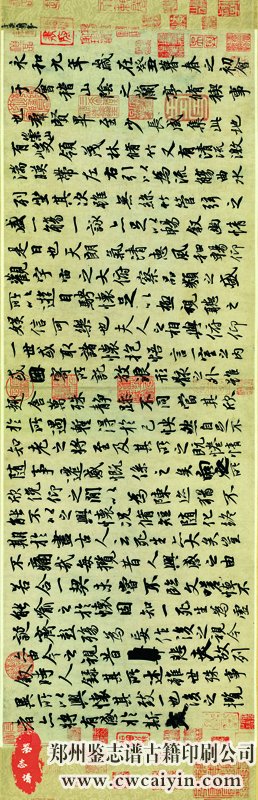 永和九年歲在癸丑暮春之初會
于會稽山陰之蘭亭脩稧事
也羣賢畢至少長咸集此地
有崇山峻領茂林脩竹又有清流激
湍暎帶左右引以為流觴曲水
列坐其次雖無絲竹管弦之
盛一觴一詠亦足以暢叙幽情
是日也天朗氣清惠風和暢仰
觀宇宙之大俯察品類之盛
所以遊目騁懷足以極視聽之
娛信可樂也夫人之相與俯仰
一世或取諸懷抱悟言一室之內
或因寄所託放浪形骸之外雖
趣舍萬殊靜躁不同當其欣
於所遇蹔得於己怏然自足不
知老之將至及其所之既惓情
隨事遷感慨係之矣向之所
欣俛仰之閒以為陳迹猶不
能不以之興懷況脩短隨化終
期於盡古人云死生亦大矣豈
不痛哉每攬昔人興感之由
若合一契未嘗不臨文嗟悼不
能喻之於懷固知一死生為虛
誕齊彭殤為妄作後之視今
亦由今之視昔悲夫故列
敘時人錄其所述雖世殊事
異所以興懷其致一也後之攬
者亦將有感於斯文
鉴志谱
郑州鉴志谱古籍印刷公司
www.cwcaiyin.com